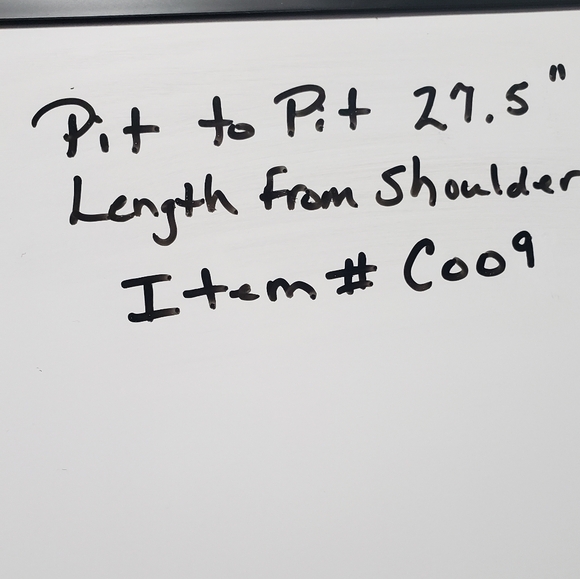 Pit to Pit 27.5"
Length from Shoulder
Item # C009